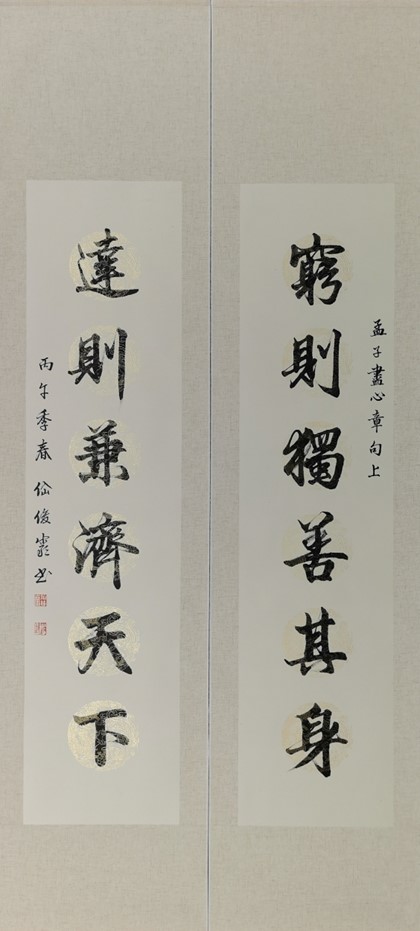 孟子盡心章句上
窮則獨善其身
達則兼濟天下
丙午季春 俊 书